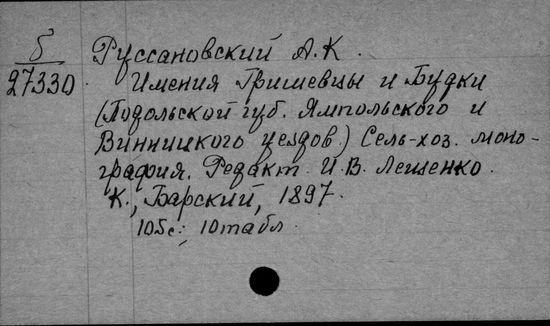 б Руссановский А.К.
27330. Имения Гришевцы и Будки
(Подольской губ. Ямпольского и
Винницкого уездов.) Сель-хоз. моно-
графия. Редакт. И.В. Лешенко.
К., Барский, 1897.
105с.; 10табл.